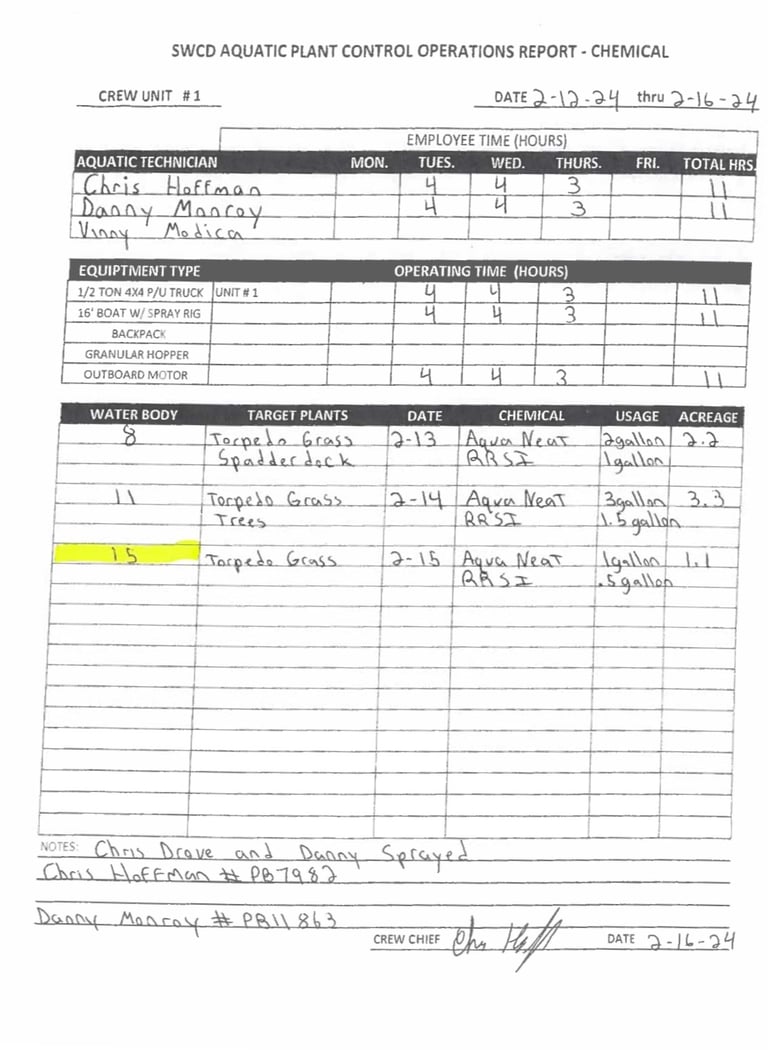 SWCD AQUATIC PLANT CONTROL OPERATIONS REPORT - CHEMICAL
CREW UNIT #1 DATE 2-12-24 thru 2-16-24
EMPLOYEE TIME (HOURS)
AQUATIC TECHNICIAN MON. TUES. WED. THURS. FRI. TOTAL HRS.
Chris Hoffman 4 4 3 11
Danny Monroy 4 4 3 11
Vinny Modica
EQUIPTMENT TYPE OPERATING TIME (HOURS)
1/2 TON 4X4 P/U TRUCK UNIT #1 4 4 3 11
16' BOAT W/ SPRAY RIG 4 4 3 11
BACKPACK
GRANULAR HOPPER
OUTBOARD MOTOR 4 4 3 11
WATER BODY TARGET PLANTS DATE CHEMICAL USAGE ACREAGE
8 Torpedo Grass 2-13 Aqua Neat 2gallon 2.2
Spadderdock RRSI 1gallon
11 Torpedo Grass 2-14 Aqua Neat 3gallon 3.3
Trees RRSI 1.5 gallon
15 Torpedo Grass 2-15 Aqua Neat 1gallon 1.1
RRSI .5gallon
NOTES: Chris Drove and Danny Sprayed
Chris Hoffman # PB7982
Danny Monroy # PB11863
CREW CHIEF Chris Hoff DATE 2-16-24